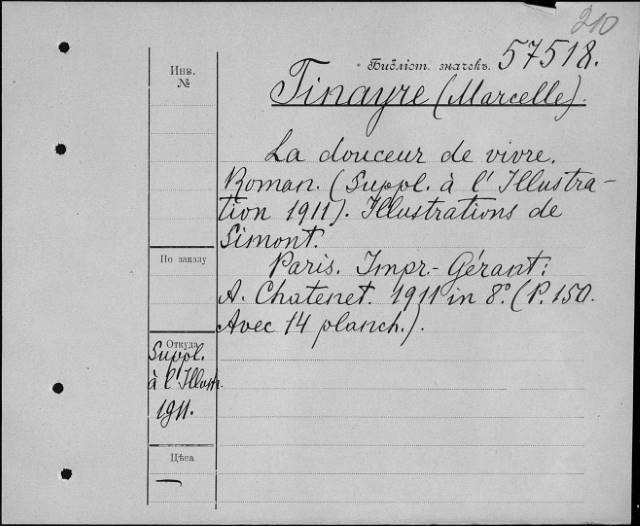 210
Библіот. значекъ. 57518.
Инв.
№
Tinayre (Marcelle).
La douceur de vivre.
Roman. (Suppl. à l'Illustra-
tion 1911). Illustrations de
Simont.
По заказу
Paris. Impr.-Gérant:
A. Chatenet. 1911 in 8º. (P. 150.
Avec 14 planch.).
Откуда
Suppl.
à l'Illustr.
1911.
Цѣна
—